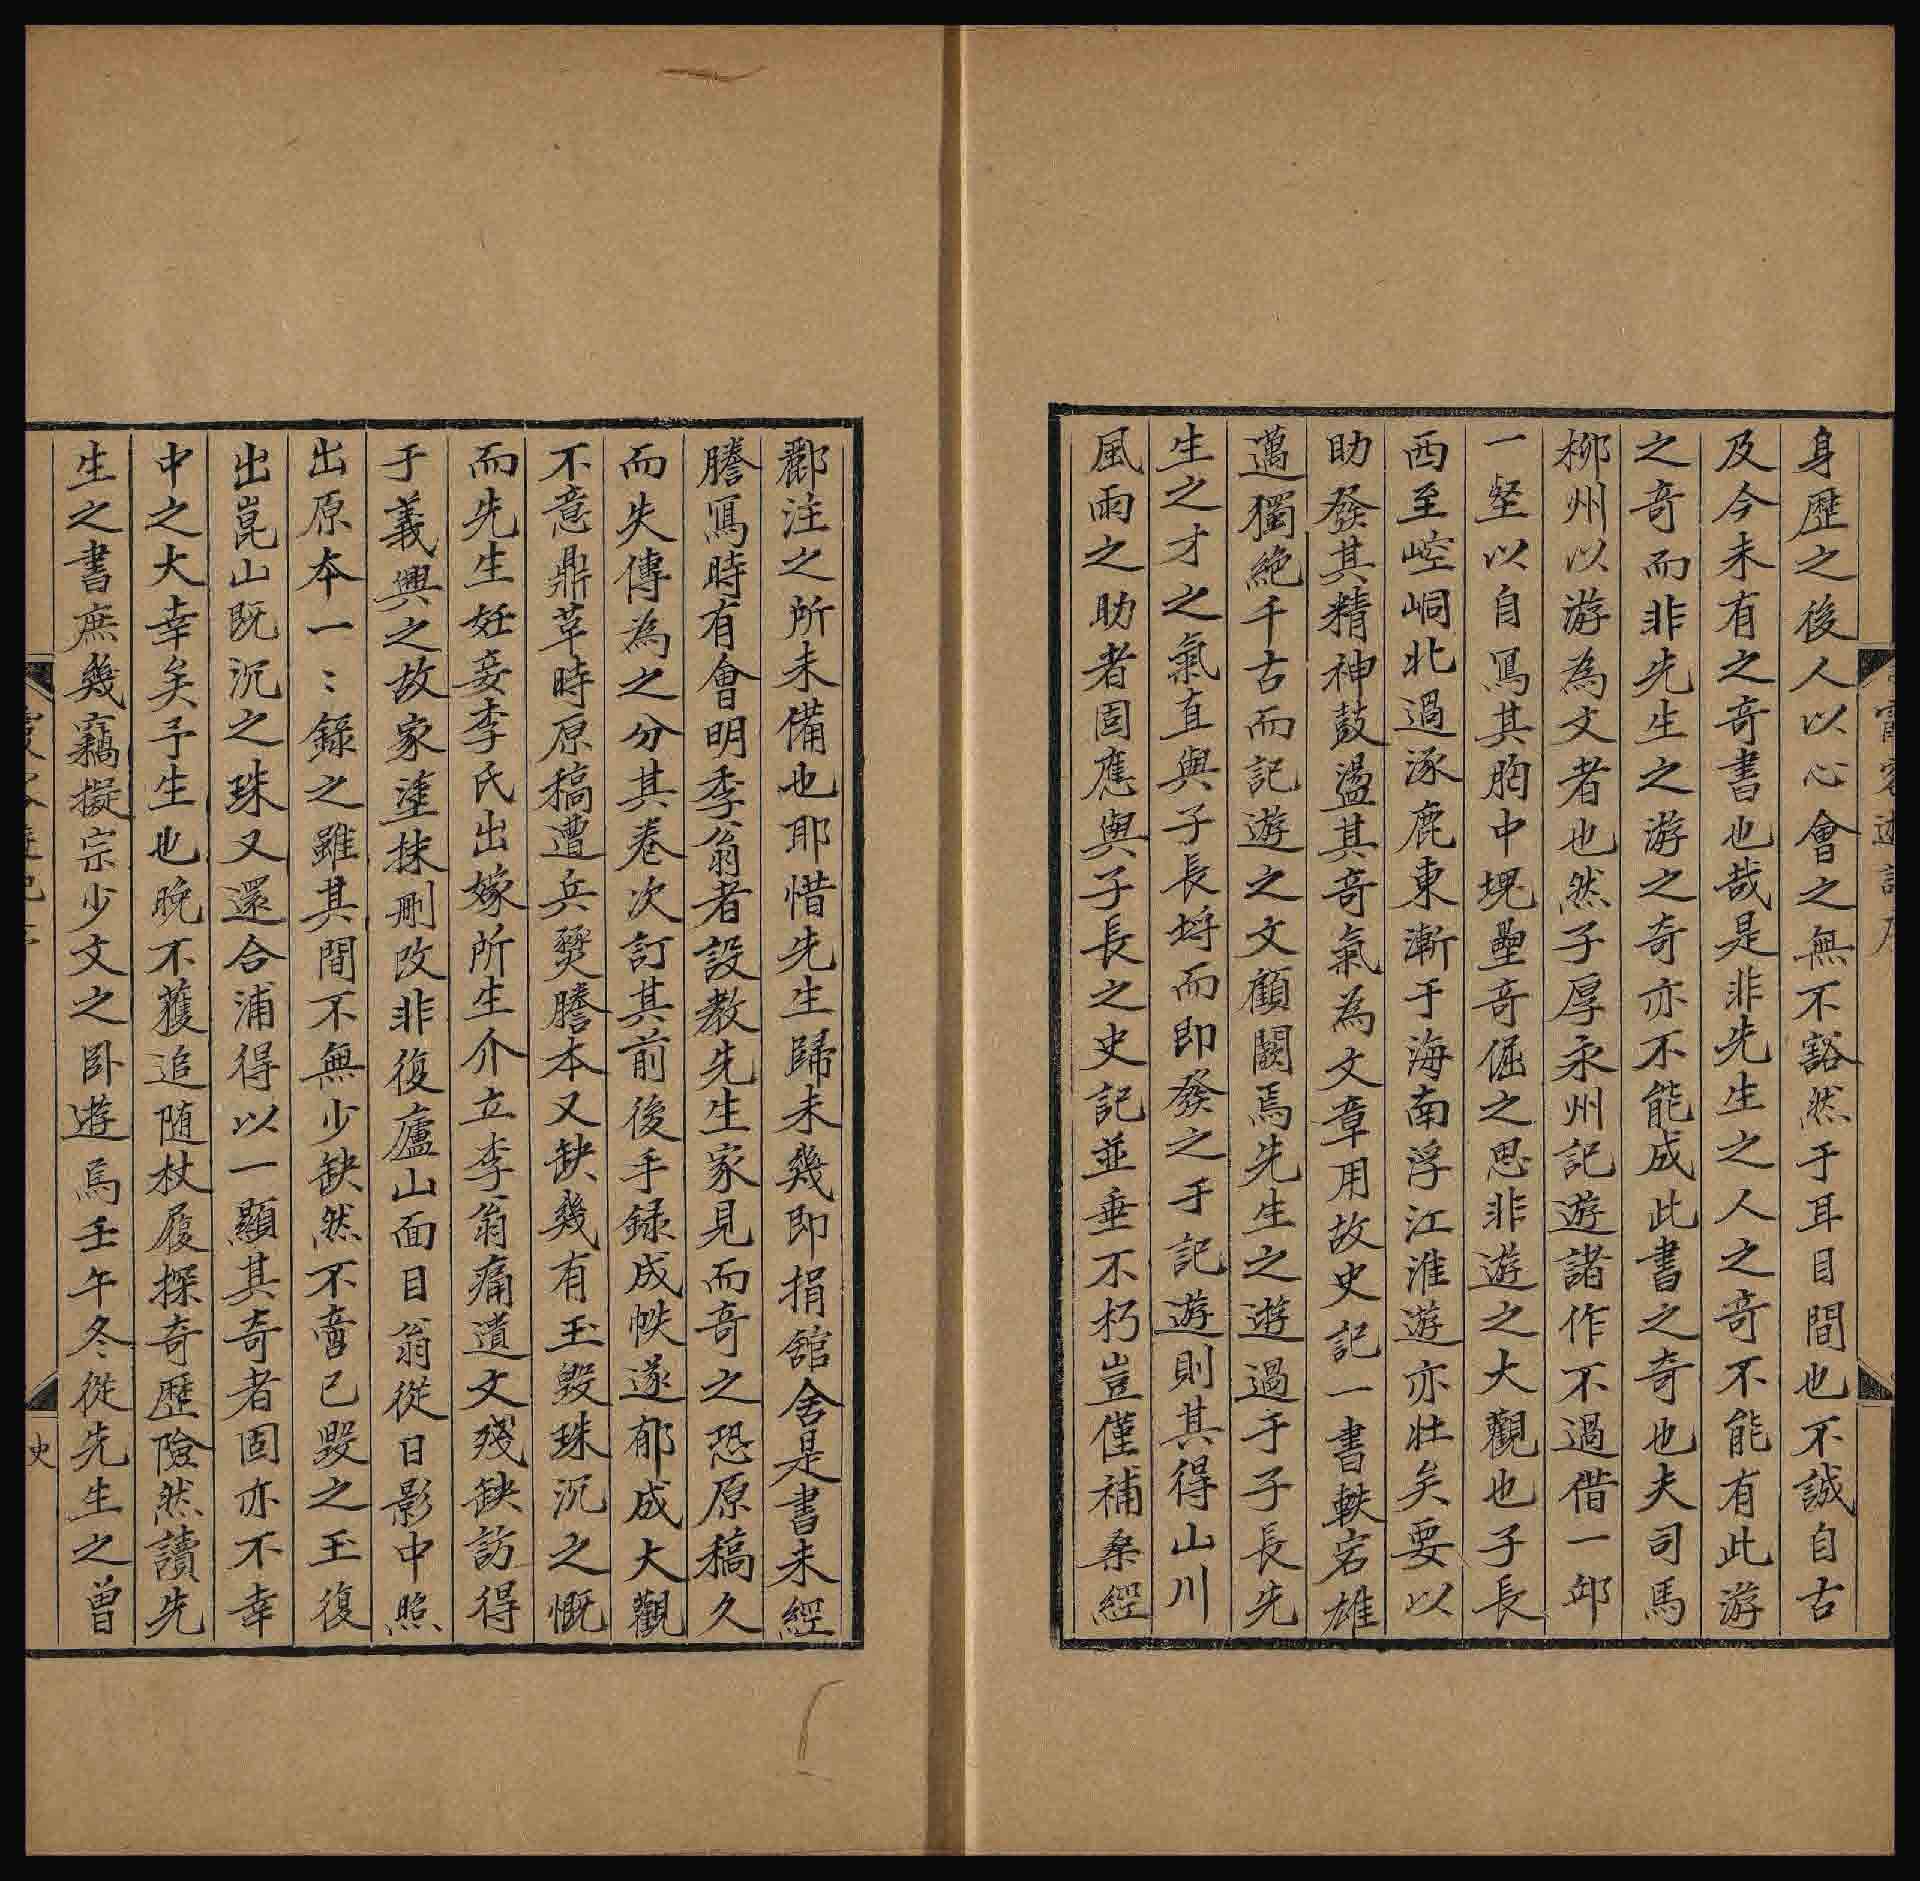 身歷之後人以心會之無不豁然于耳目間也不誠自古
及今未有之奇書也哉是非先生之人之奇不能有此游
之奇而非先生之游之奇亦不能成此書之奇也夫司馬
柳州以游為文者也然子厚永州記遊諸作不過借一邱
一壑以自寫其胸中塊壘奇倔之思非遊之大觀也子長
西至崆峒北過涿鹿東漸于海南浮江淮遊亦壯矣要以
助發其精神鼓盪其奇氣為文章用故史記一書軼宕雄
邁獨絶千古而記遊之文顧闕焉先生之遊過于子長先
生之才之氣直與子長埒而即發之于記遊則其得山川
風雨之助者固應與子長之史記並垂不朽豈僅補桑經
酈注之所未備也耶惜先生歸未幾即捐舘舍是書未經
謄寫時有會明季翁者設教先生家見而奇之恐原稿久
而失傳為之分其卷次訂其前後手録成帙遂郁成大觀
不意鼎革時原稿遭兵燹謄本又缺幾有玉毀珠沉之慨
而先生妊妾李氏出嫁所生介立李翁痛遺文殘缺訪得
于義興之故家塗抹刪改非復廬山面目翁從日影中照
出原本一〻錄之雖其間不無少缺然不啻已毀之玉復
出崑山既沉之珠又還合浦得以一顯其奇者固亦不幸
中之大幸矣予生也晚不獲追随杖履探奇歷險然讀先
生之書庶幾竊擬宗少文之卧遊焉壬午冬從先生之曾
史